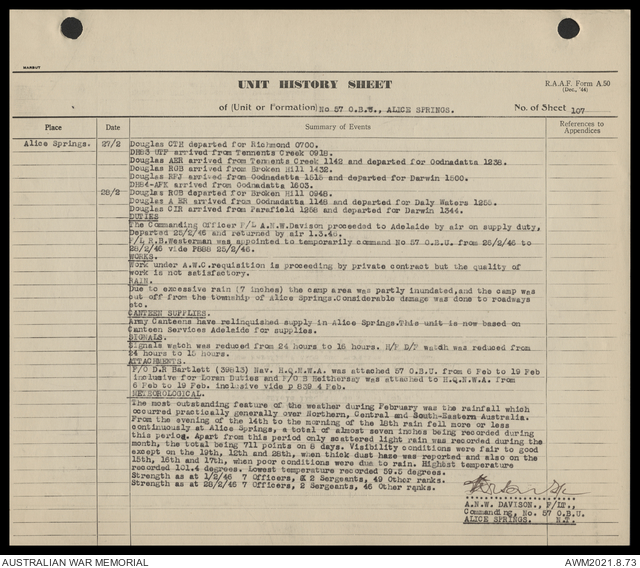 HARBUT
UNIT HISTORY SHEET
R.A.A.F. Form A.50
(Dec., '44)
of (Unit or Formation) No 57 O.B.U., ALICE SPRINGS.
No. of Sheet 107
Place Date Summary of Events References to Appendices
Alice Springs. 27/2 Douglas CTH departed for Richmond 0700.
DH83 UTF arrived from Tennents Creek 0918.
Douglas AER arrived from Tennents Creek 1142 and departed for Oodnadatta 1238.
Douglas RGB arrived from Broken Hill 1432.
Douglas RFJ arrived from Oodnadatta 1515 and departed for Darwin 1800.
DH84-AFK arrived from Oodnadatta 1603.
28/2 Douglas RGB departed for Broken Hill 0948.
Douglas A ER arrived from Oodnadatta 1148 and departed for Daly Waters 1255.
Douglas CIR arrived from Parafield 1258 and departed for Darwin 1344.
DUTIES
The Commanding Officer F/L A.N.W.Davison proceeded to Adelaide by air on supply duty,
Departed 25/2/46 and returned by air 1.3.46.
F/L R.B.Westerman was appointed to temporarily command No 57 O.B.U. from 26/2/46 to
28/2/46 vide P888 25/2/46.
WORKS.
Work under A.W.C.requisition is proceeding by private contract but the quality of
work is not satisfactory.
RAIN.
Due to excessive rain (7 inches) the camp area was partly inundated,and the camp was
cut off from the township of Alice Springs.Considerable damage was done to roadways
etc.
CANTEEN SUPPLIES.
Army Canteens have relinquished supply in Alice Springs.This unit is now based on
Canteen Services Adelaide for supplies.
SIGNALS.
Signals watch was reduced from 24 hours to 16 hours. H/F D/F watch was reduced from
24 hours to 15 hours.
ATTACHMENTS.
F/O D.R Bartlett (39813) Nav. H.Q.N.W.A. was attached 57 O.B.U. from 6 Feb to 19 Feb
inclusive for Loran Duties and F/O B Neithersay was attached to H.Q.N.W.A. from
6 Feb to 19 Feb. inclusive vide p 839 4 Feb.
METEOROLOGICAL.
The most outstanding feature of the weather during February was the rainfall which
occurred practically generally over Northern, Central and South-Eastern Australia.
From the evening of the 14th to the morning of the 18th rain fell more or less
continuously at Alice Springs, a total of almost seven inches being recorded during
this period. Apart from this period only scattered light rain was recorded during the
month, the total being 711 points on 8 days. Visibility conditions were fair to good
except on the 19th, 12th and 28th, when thick dust haze was reported and also on the
15th, 16th and 17th, when poor conditions were due to rain. Highest temperature
recorded 101.4 degrees. Lowest temperature recorded 59.5 degrees.
Strength as at 1/2/46 7 Officers, 2 Sergeants, 49 Other ranks.
Strength as at 28/2/46 7 Officers, 2 Sergeants, 46 Other ranks.
A.N.W. DAVISON., F/LT.,
Commanding, No. 57 O.B.U.
ALICE SPRINGS. N.T.
AUSTRALIAN WAR MEMORIAL
AWM2021.8.73